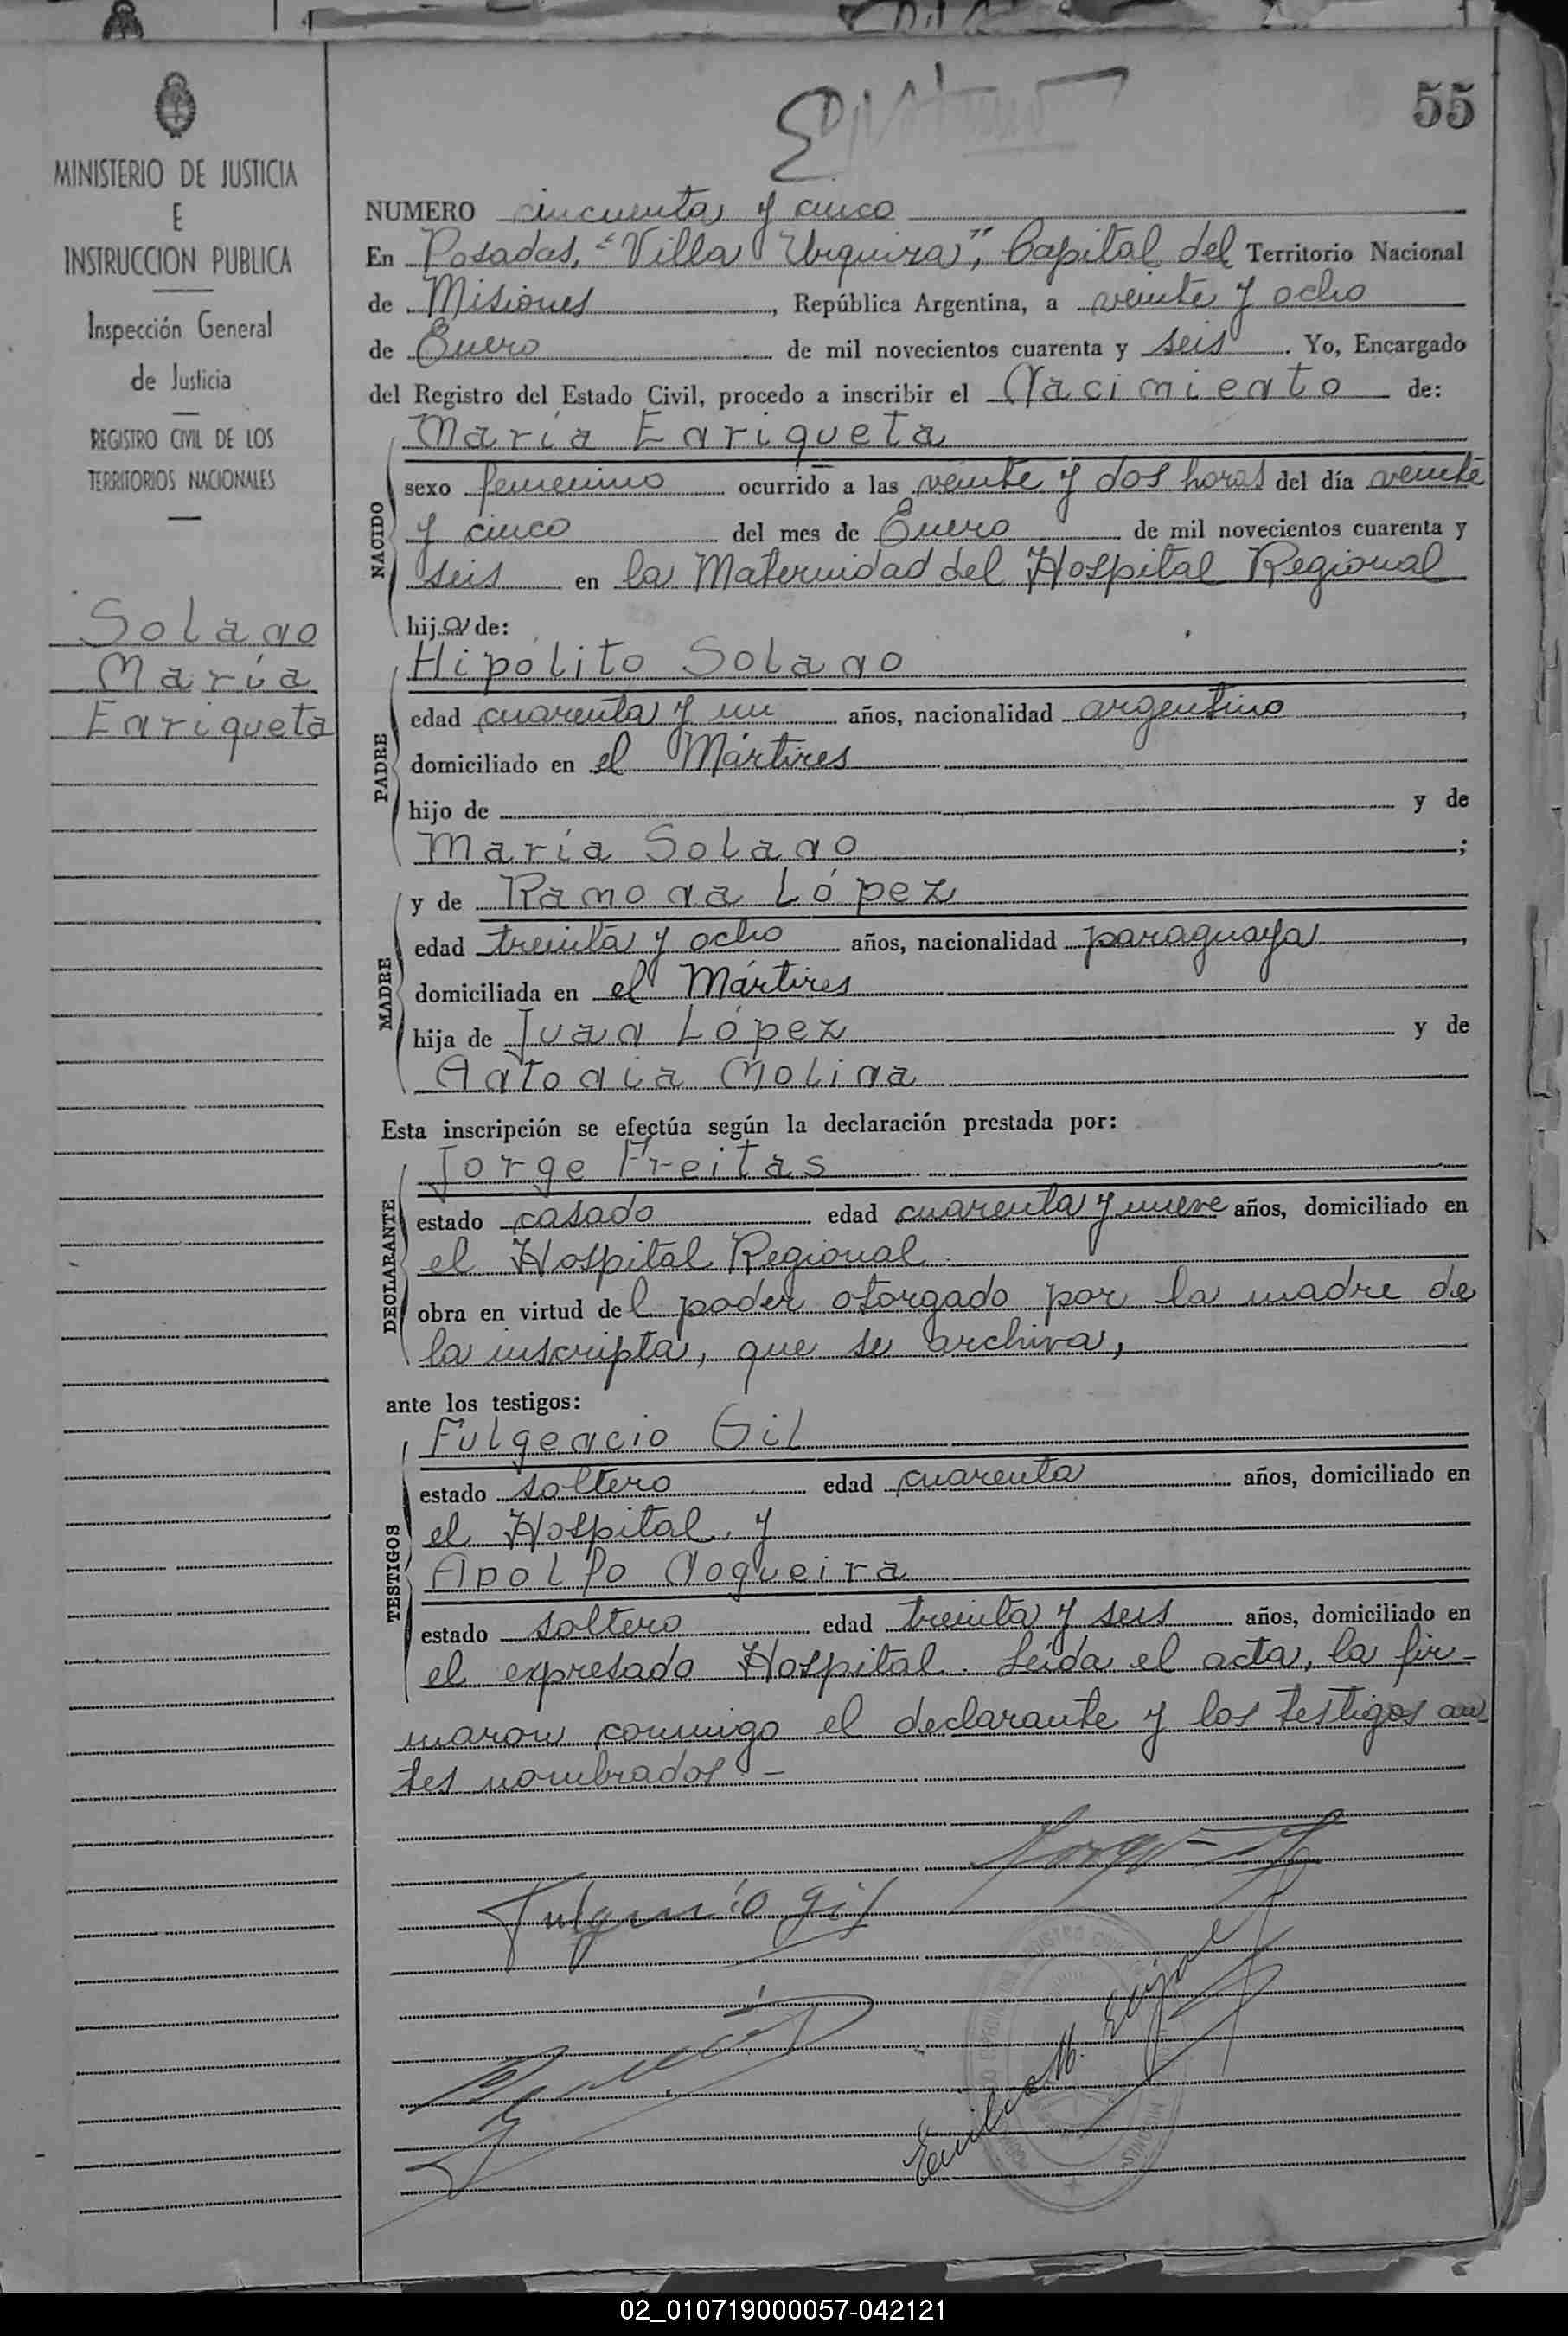 55
MINISTERIO DE JUSTICIA
E
INSTRUCCION PUBLICA
Inspección General
de Justicia
REGISTRO CIVIL DE LOS
TERRITORIOS NACIONALES
Solano
María
Enriqueta
NUMERO cincuenta y cinco
En Posadas, "Villa Urquiza", Capital del Territorio Nacional
de Misiones, República Argentina, a veinte y ocho
de Enero de mil novecientos cuarenta y seis. Yo, Encargado
del Registro del Estado Civil, procedo a inscribir el Nacimiento de:
María Enriqueta
NACIDO
sexo femenino ocurrido a las veinte y dos horas del día veinte
y cinco del mes de Enero de mil novecientos cuarenta y
seis en la Maternidad del Hospital Regional
hija de:
Hipólito Solano
PADRE
edad cuarenta y un años, nacionalidad argentino,
domiciliado en el Mártires
hijo de y de
María Solano;
y de Ramona López
MADRE
edad treinta y ocho años, nacionalidad paraguaya,
domiciliada en el Mártires
hija de Juan López y de
Antonia Molina
Esta inscripción se efectúa según la declaración prestada por:
Jorge Freitas
DECLARANTE
estado casado edad cuarenta y nueve años, domiciliado en
el Hospital Regional
obra en virtud del poder otorgado por la madre de
la inscripta, que se archiva,
ante los testigos:
Fulgencio Gil
TESTIGOS
estado soltero edad cuarenta años, domiciliado en
el Hospital, y
Adolfo Nogueira
estado soltero edad treinta y seis años, domiciliado en
el expresado Hospital. Leída el acta, la fir-
maron conmigo el declarante y los testigos an-
tes nombrados.-
Fulgencio Gil
02_010719000057-042121